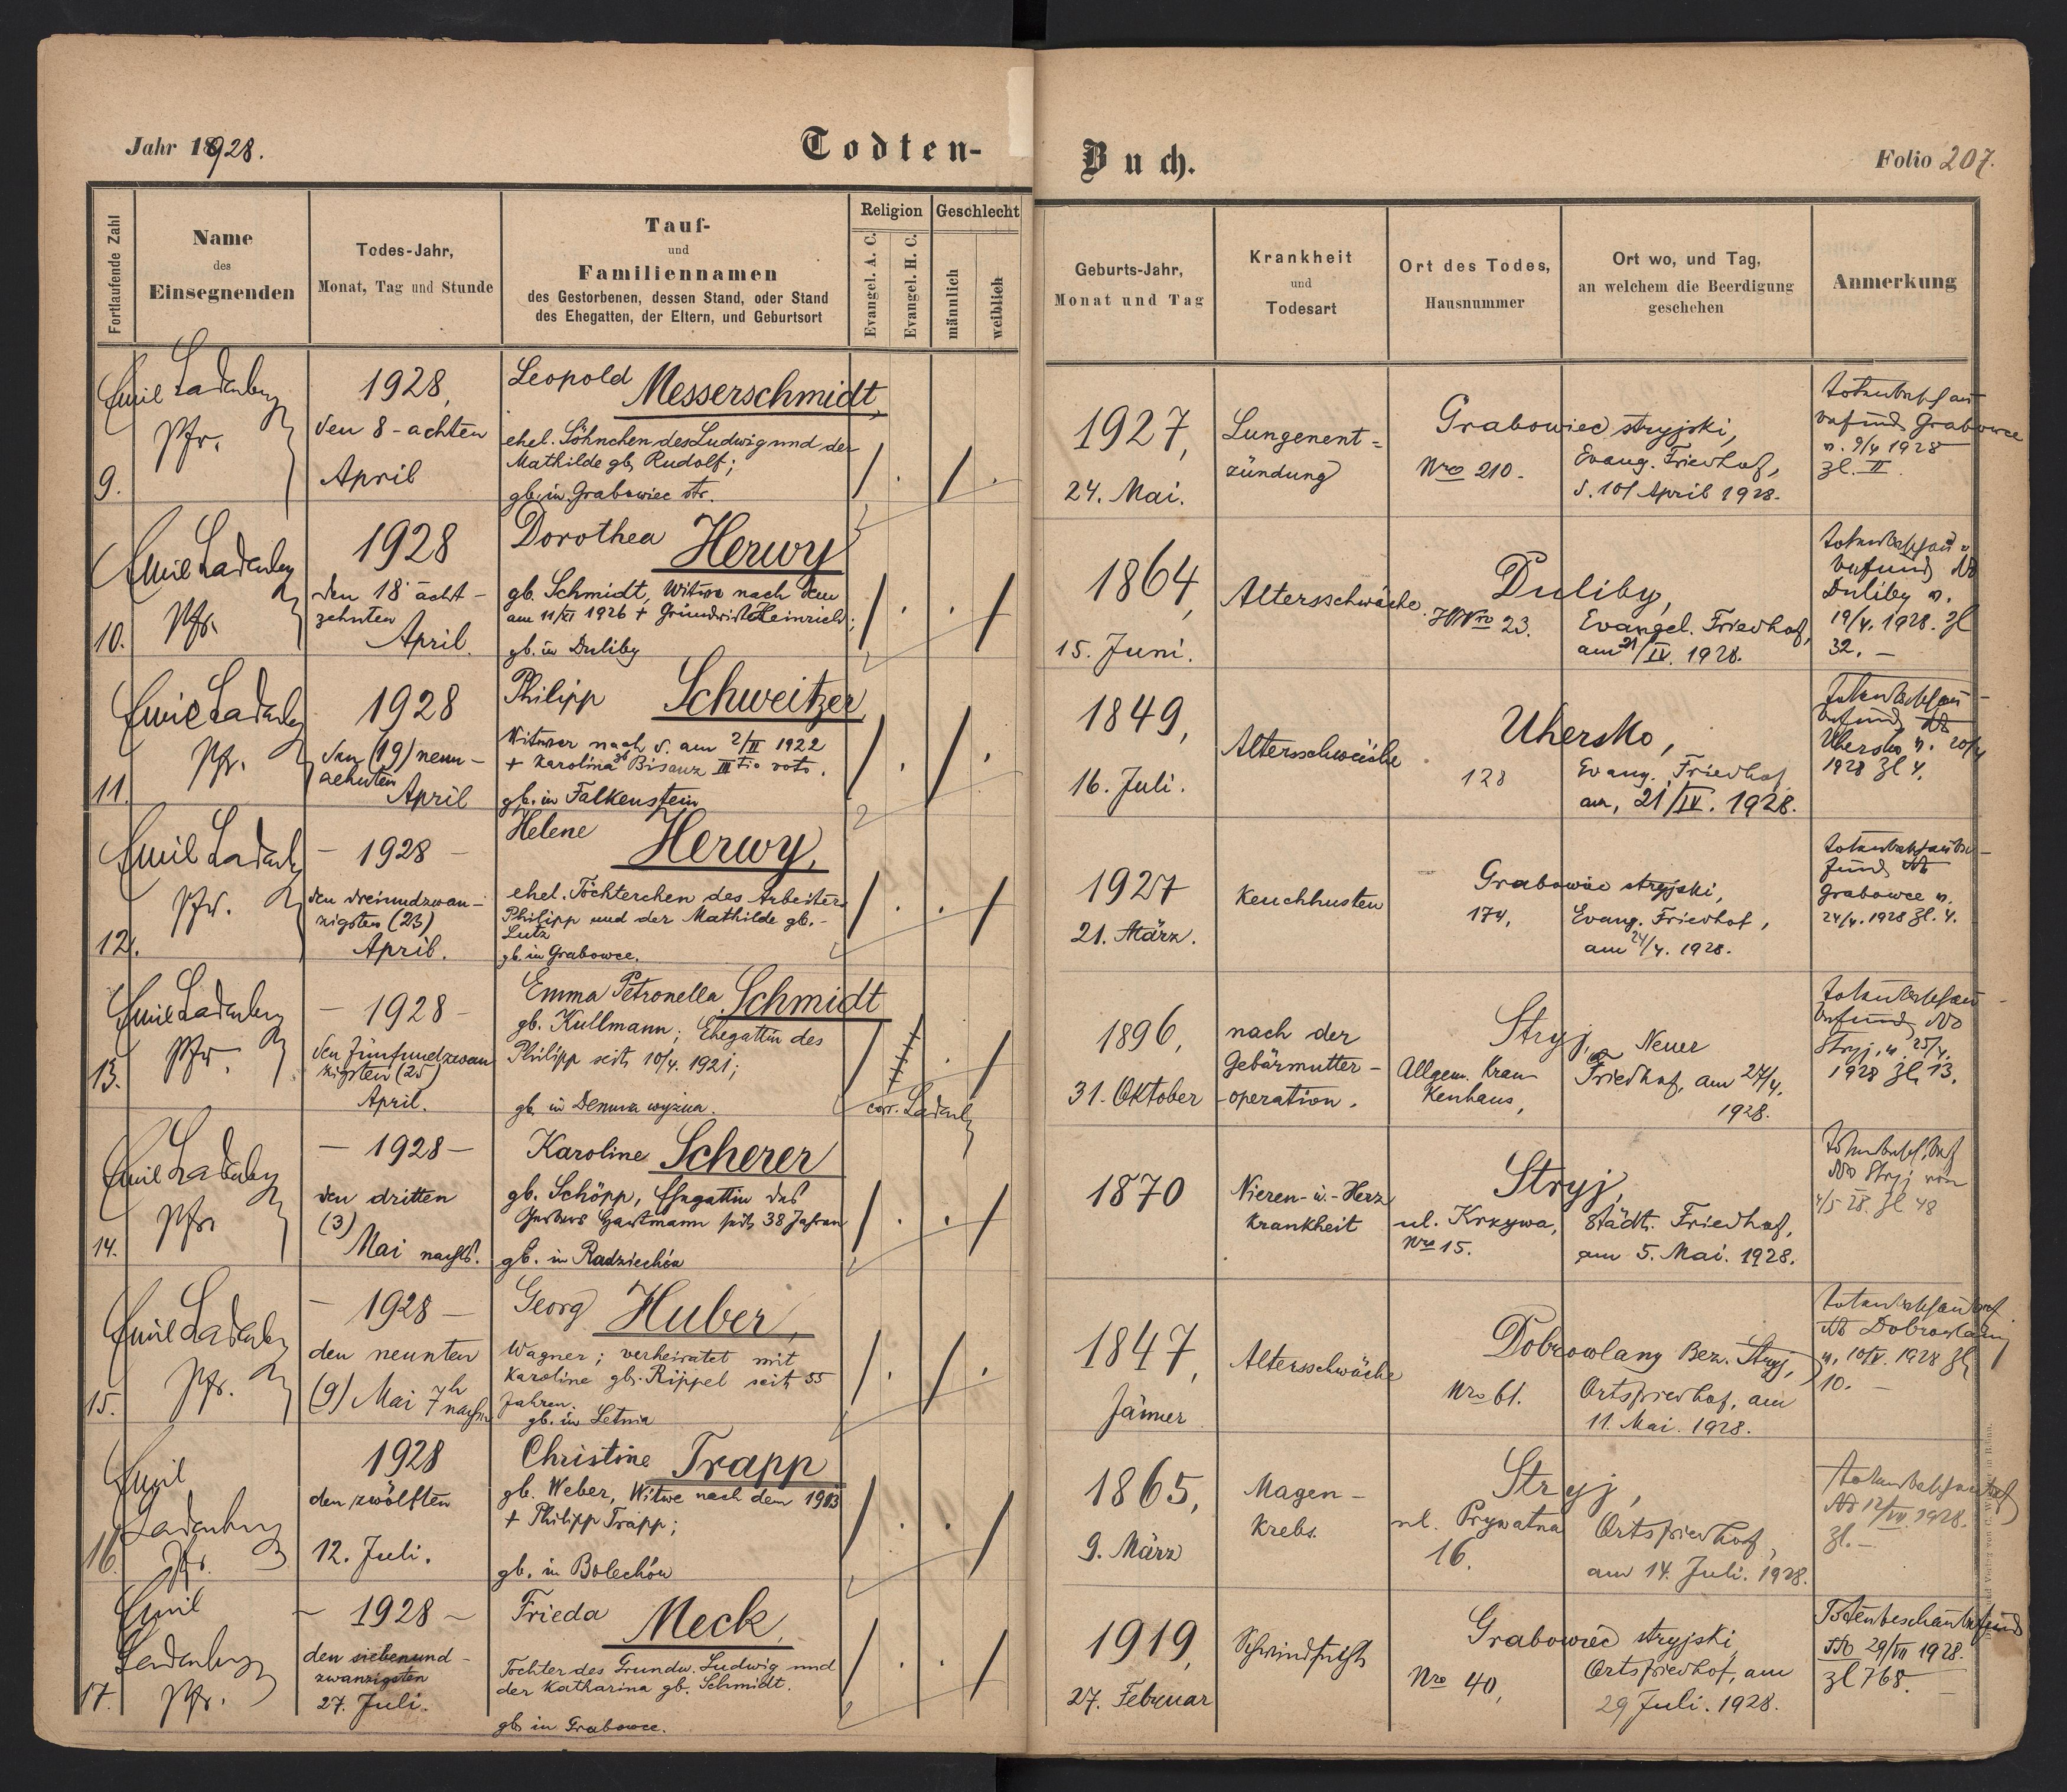 Jahr 1928.
Todten-
Buch.
Folio 207.
Fortlaufende Zahl
Name
des
Einsegnenden
Todes-Jahr,
Monat, Tag und Stunde
Tauf-
und
Familiennamen
des Gestorbenen, dessen Stand, oder Stand
des Ehegatten, der Eltern, und Geburtsort
Religion
Evangel. A. C.
Evangel. H. C.
Geschlecht
männlich
weiblich
Geburts-Jahr,
Monat und Tag
Krankheit
und
Todesart
Ort des Todes,
Hausnummer
Ort wo, und Tag,
an welchem die Beerdigung
geschehen
Anmerkung
9.
Emil Ladenberger
Pfr.
1928,
den 8-achten
April
Leopold Messerschmidt,
ehel. Söhnchen des Ludwig und der
Mathilde gb. Rudolf;
gb. in Grabowiec str.
1927,
24. Mai.
Lungenent=
zündung
Grabowiec stryjski,
Nro 210.
Evang. Friedhof,
d. 10/ April 1928.
Totenbeschau
befund Grabowce
v. 9/4 1928
Zl. II.
10.
Emil Ladenberger
Pfr.
1928
den 18 acht-
zehnten
April.
Dorothea Herwy
gb. Schmidt, Witwe nach dem
am 11/XI 1926 + Grundwirt Heinrich;
gb. in Duliby
1864,
15. Juni.
Altersschwäche.
Duliby,
HNro 23.
Evangel. Friedhof,
am 21/IV. 1928.
Totenbeschau-
befund
Duliby v.
19/4. 1928. Zl
32. —
11.
Emil Ladenberger
Pfr.
1928
den (19) neun-
zehnten
April
Philipp Schweitzer,
Witwer nach d. am 2/II 1922
+ Karolina gb Bisanz III tio voto.
gb. in Falkenstein
1849,
16. Juli.
Altersschwäche
Uhersko,
128
Evang. Friedhof
am, 21/IV. 1928.
Totenbeschau-
befund
Uhersko v. 20/4
1928 Zl 4.
12.
Emil Ladenberger
Pfr.
— 1928 —
den dreiundzwan-
zigsten (23)
April.
Helene Herwy,
ehel. Töchterchen des Arbeiters
Philipp und der Mathilde gb.
Lutz
gb. in Grabowce.
1927
21. März.
Keuchhusten
Grabowiec stryjski,
174,
Evang. Friedhof,
am 24/4. 1928.
Totenbeschaube-
fund
Grabowce v.
24/4. 1928 Zl. 4.
13.
Emil Ladenberger
Pfr.
— 1928 —
den fünfundzwan
zigsten (25)
April.
Emma Petronella Schmidt
gb. Kullmann; Ehegattin des
Philipp seit 10/4. 1921;
gb. in wyżna.
corr. Ladenberger
1896,
31. Oktober
nach der
Gebärmutter-
operation.
Stryj,
Allgem. Kran-
kenhaus,
Neuer
Friedhof, am 27/4.
1928.
Totenbeschau-
befund
Stryj, v. 25/4.
1928 Zl. 13.
14.
Emil Ladenberger
Pfr.
— 1928 —
den dritten
(3)
Mai nachts.
Karoline Scherer
gb. Schöpp, Ehegattin des
Hartmann seit 38 Jahren
gb. in Radziechów
1870
Nieren- u.- Herz
krankheit
Stryj,
ul. Krzywa,
Nro 15.
Städt. Friedhof,
am 5. Mai. 1928.
Totenbesch. bef
Stryj von
4/5 28. Zl 48
15.
Emil Ladenberger
Pfr.
— 1928 —
den neunten
(9) Mai 7h nachm
Georg Huber,
Wagner; verheiratet mit
Karoline gb. Rippel seit 55
Jahren.
gb. in Letnia
1847,
Jänner
Altersschwäche
Dobrowlany Bez. Stryj,
Nro 61.
Ortsfriedhof, am
11. Mai. 1928.
Totenbeschaubef
Dobrowlany
v. 10/V. 1928 Zl
10. —
16.
Emil
Ladenberger
Pfr.
1928
den zwölften
12. Juli.
Christine Trapp
gb. Weber, Witwe nach dem 1903
+ Philipp Trapp;
gb. in Bolechów
1865,
9. März
Magen-
krebs.
Stryj,
ul. Prywatna
16.
Ortsfriedhof,
am 14. Juli. 1928.
Totenbeschaubef
12/VII. 1928.
Zl. —
17.
Emil
Ladenberger
Pfr.
— 1928 —
den siebenund-
zwanzigsten
27. Juli.
Frieda Meck,
Tochter des Grundw. Ludwig und
der Katharina gb. Schmidt.
gb in Grabowce.
1919,
27. Februar
Schwindsucht
Grabowiec stryjski
Nro 40,
Ortsfriedhof, am
29 Juli. 1928.
Totenbeschaubefund
29/VII 1928.
Zl 768. —